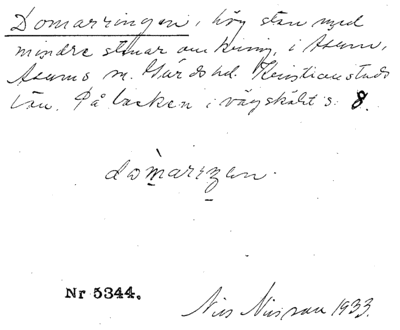 Domarringen, hög sten med
mindre stenar omkring, i Åsum,
Åsums sn. Gärds hd. Kristianstads
län. På backen i vägskälet s. 8.
domarizen.
Nr 5344.
Nils Nilsson 1933.